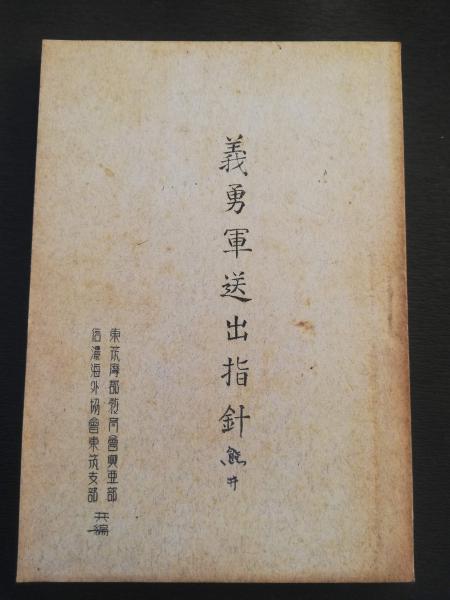 義勇軍送出指針
熊井
東筑摩郡教育會興亜部
信濃海外協會東筑支部
共編